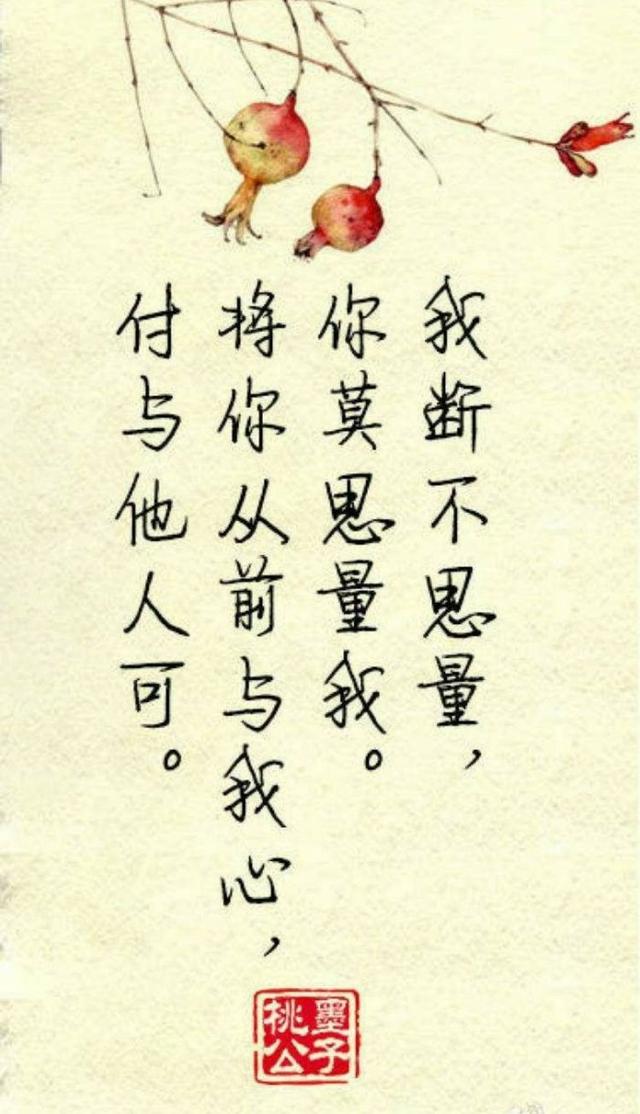 我断不思量，
你莫思量我。
将你从前与我心，
付与他人可。
墨子
桃公